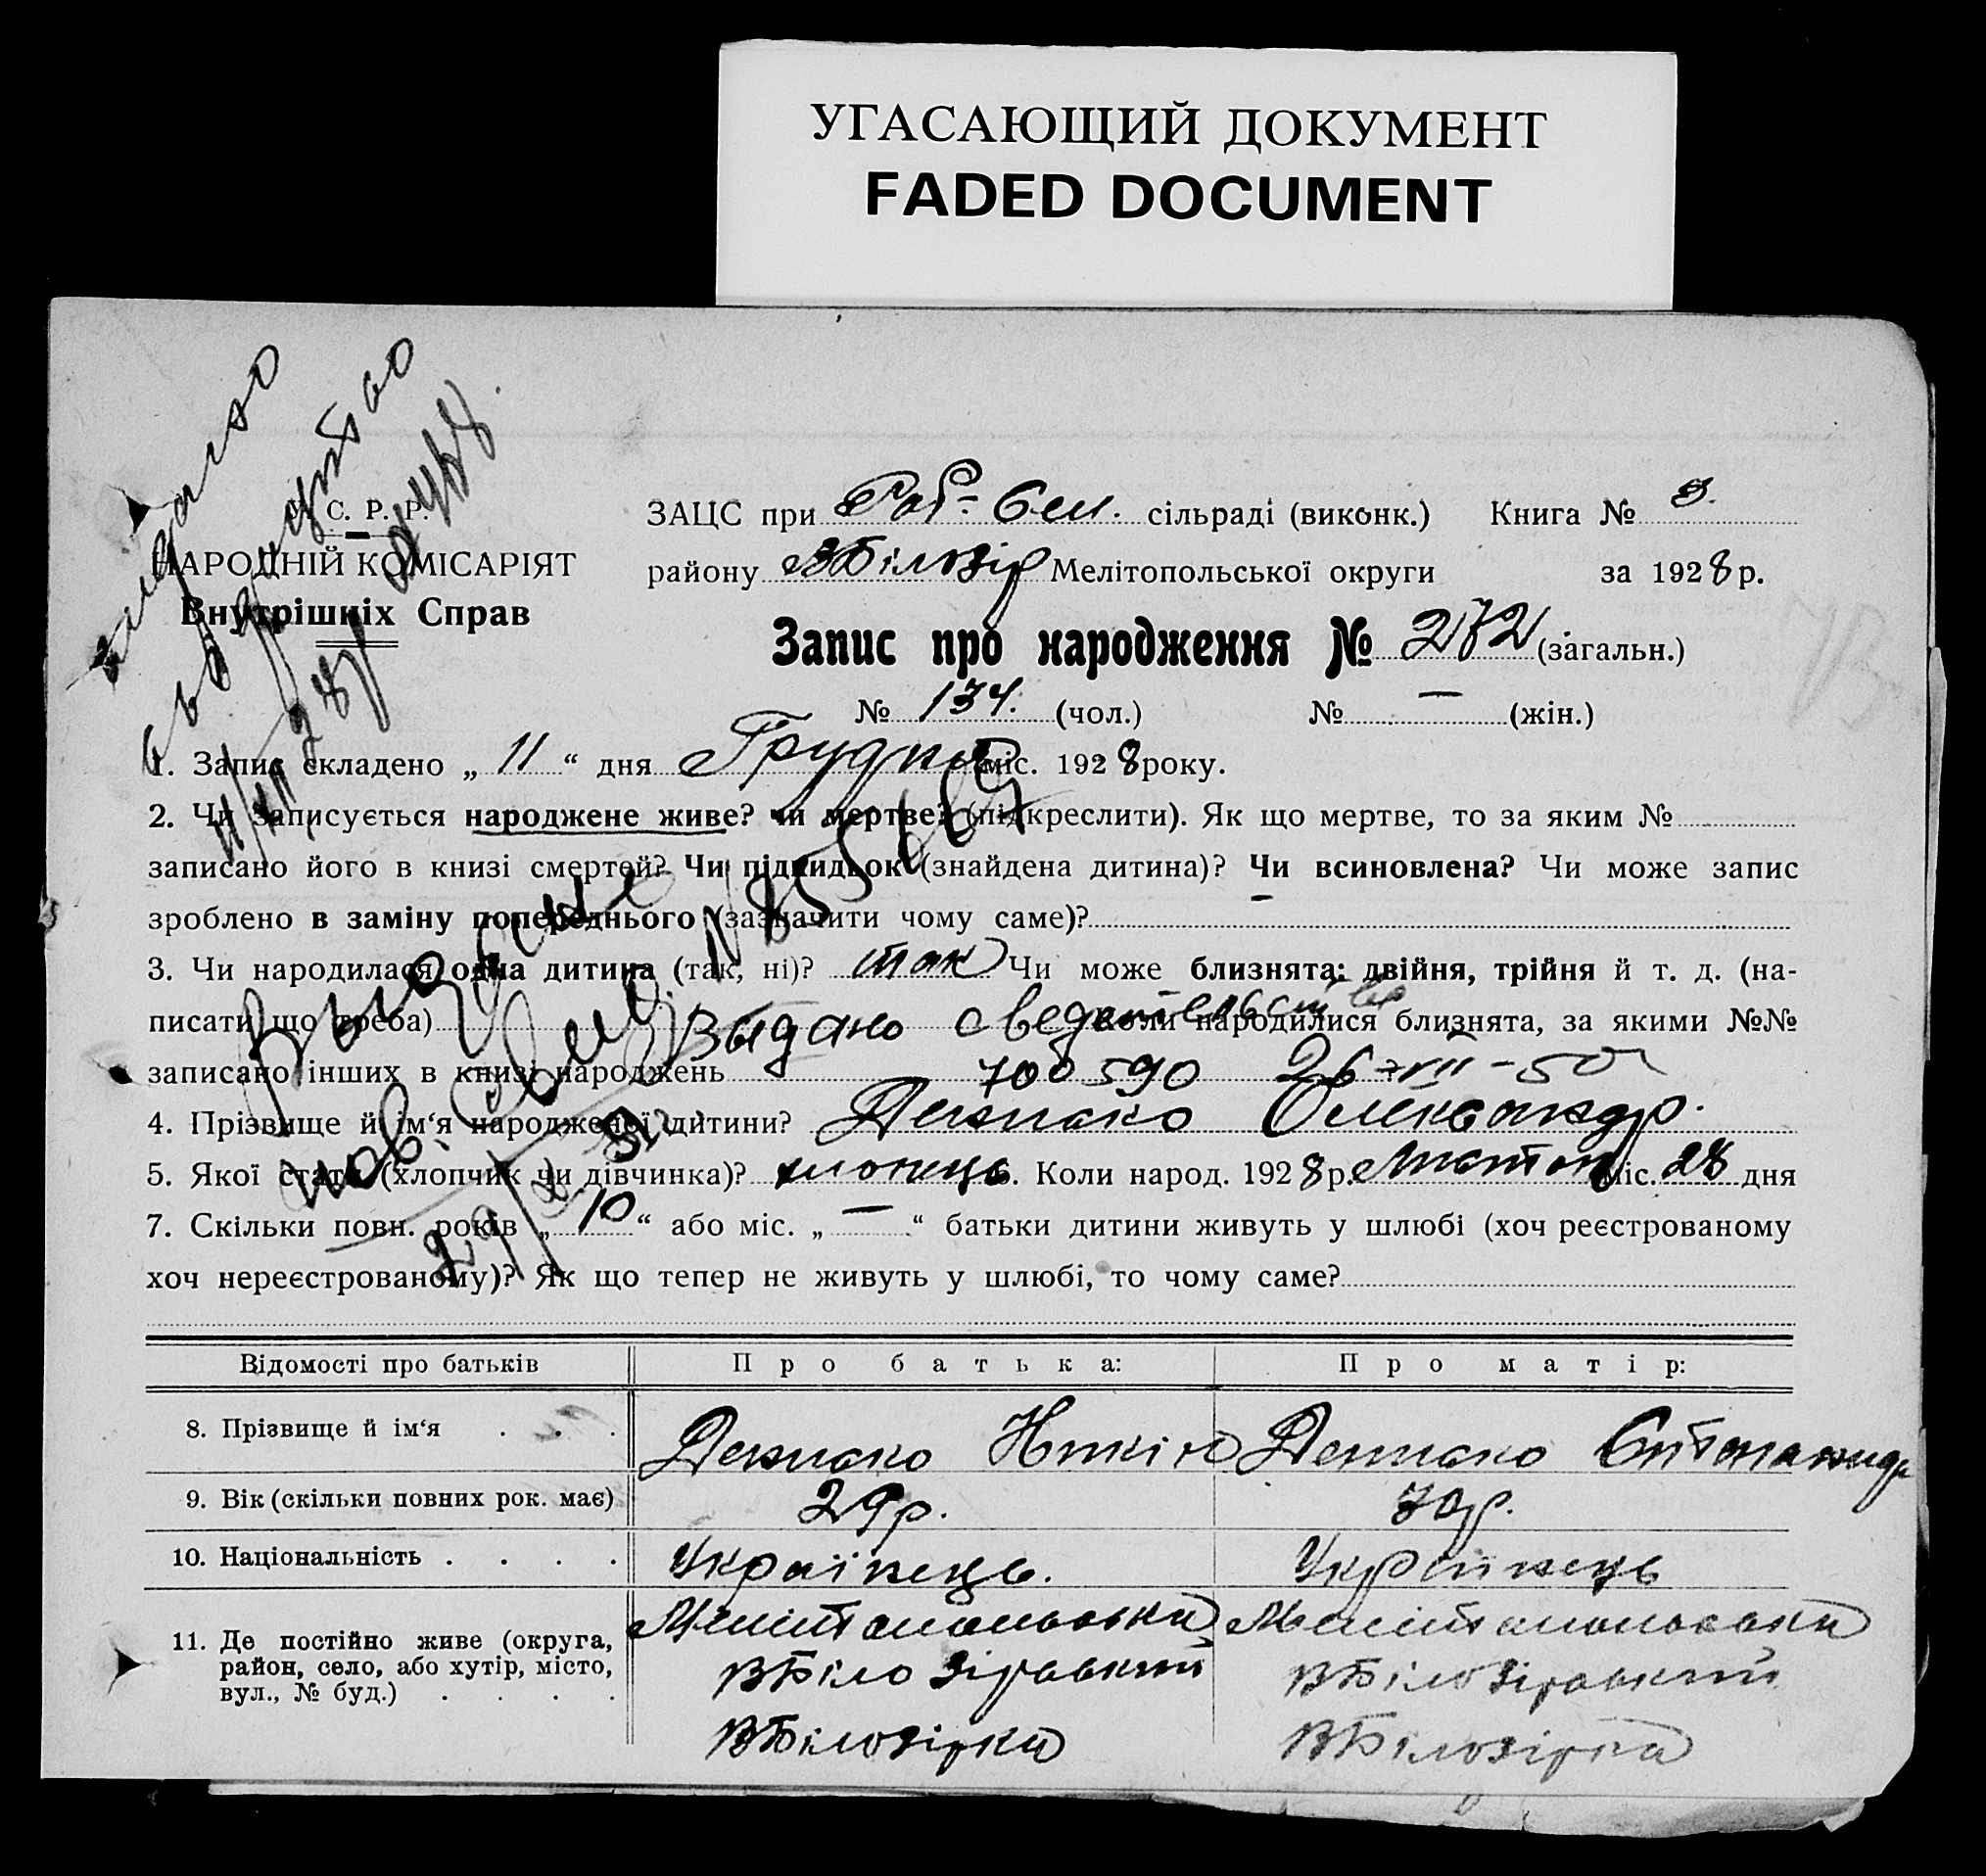 УГАСАЮЩИЙ ДОКУМЕНТ
FADED DOCUMENT
У. С. Р. Р.
НАРОДНІЙ КОМІСАРІЯТ
Внутрішніх Справ
ЗАЦС при сільраді (виконк.) Книга № 3.
району ВБілозір Мелітопольської округи за 1928 р.
Запис про народження № 272 (загальн.)
№ 134. (чол.) № — (жін.)
1. Запис складено „ 11 “ дня Грудня міс. 1928 року.
2. Чи записується народжене живе? чи мертве? (підкреслити). Як що мертве, то за яким №
записано його в книзі смертей? Чи підкидьок (знайдена дитина)? Чи всиновлена? Чи може запис
зроблено в заміну попереднього (зазначити чому саме)? —
3. Чи народилася одна дитина (так, ні)? так Чи може близнята: двійня, трійня й т. д. (на-
писати що треба) Коли народилися близнята, за якими №№
Выдано сведетельство
записано інших в книзі народжень
700590 26-VII-50
4. Прізвище й ім‘я народженої дитини? Олександр.
5. Якої статі (хлопчик чи дівчинка)? хлопець 6. Коли народ. 1928 р. Листоп міс. 28 дня
7. Скільки повн. років „ 10 “ або міс. „ — “ батьки дитини живуть у шлюбі (хоч реєстрованому
хоч нереєстрованому)? Як що тепер не живуть у шлюбі, то чому саме?
Відомості про батьків Про батька: Про матір:
8. Прізвище й ім‘я . . .
9. Вік (скільки повних рок. має) 29р. 30р.
10. Національність . . . . Українець. Українець
11. Де постійно живе (округа, район, село, або хутір, місто, вул., № буд.) . . . .
Мелітопольська Мелітопольська
ВБілозірський ВБілозірський
ВБілозірка ВБілозірка